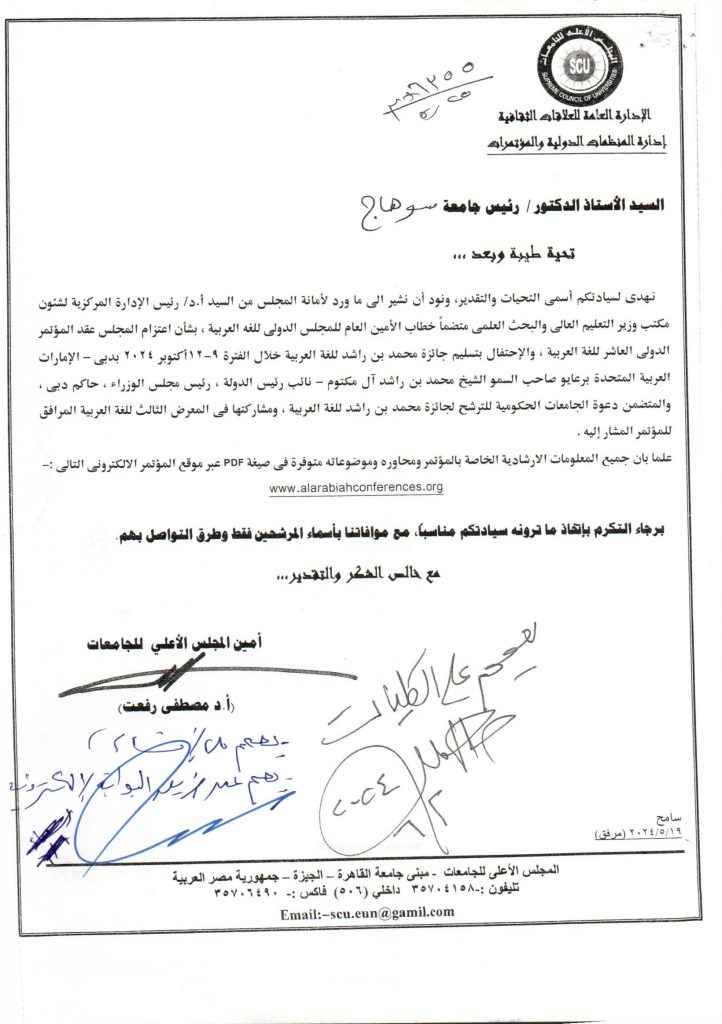 المجلس الأعلى للجامعات
SCU
SUPREME COUNCIL OF UNIVERSITIES
الإدارة العامة للعلاقات الثقافية
إدارة المنظمات الدولية والمؤتمرات
السيد الأستاذ الدكتور/ رئيس جامعة سوهاج
تحية طيبة وبعد ،،،
نهدى لسيادتكم أسمى التحيات والتقدير، ونود أن نشير الى ما ورد لأمانة المجلس من السيد أ.د/ رئيس الإدارة المركزية لشئون
مكتب وزير التعليم العالى والبحث العلمى متضماً خطاب الأمين العام للمجلس الدولى للغه العربية ، بشأن اعتزام المجلس عقد المؤتمر
الدولى العاشر للغة العربية ، والإحتفال بتسليم جائزة محمد بن راشد للغة العربية خلال الفترة ٩-١٢أكتوبر ٢٠٢٤ بدبى – الإمارات
العربية المتحدة برعايو صاحب السمو الشيخ محمد بن راشد آل مكتوم – نائب رئيس الدولة ، رئيس مجلس الوزراء ، حاكم دبى ،
والمتضمن دعوة الجامعات الحكومية للترشح لجائزة محمد بن راشد للغة العربية ، ومشاركتها فى المعرض الثالث للغة العربية المرافق
للمؤتمر المشار إليه .
علما بان جميع المعلومات الارشادية الخاصة بالمؤتمر ومحاوره وموضوعاته متوفرة فى صيغة PDF عبر موقع المؤتمر الالكترونى التالى :–
www.alarabiahconferences.org
برجاء التكرم بإتخاذ ما ترونه سيادتكم مناسباً، مع موافاتنا بأسماء المرشحين فقط وطرق التواصل بهم.
مع خالص الشكر والتقدير،،،
أمين المجلس الأعلي للجامعات
(أ.د مصطفى رفعت)
يعمم على الكليات
٢٠٢٤
سامح
٢٠٢٤/٥/١٩ (مرفق)
المجلس الأعلى للجامعات - مبنى جامعة القاهرة – الجيزة – جمهورية مصر العربية
تليفون :- ٣٥٧٠٤١٥٨ داخلي (٥٠٦) فاكس :- ٣٥٧٠٦٤٩٠
Email:–scu.eun@gamil.com